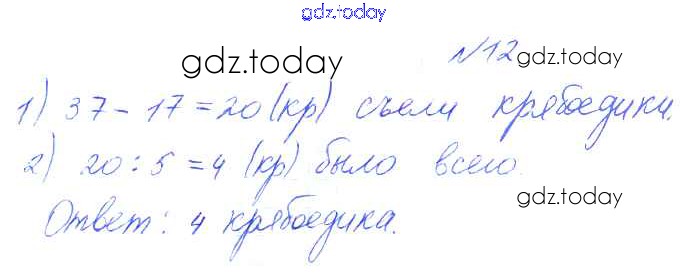 gdz.today
№12
gdz.today
gdz.today
1) 37 - 17 = 20 (кр) съели крябоедики.
2) 20 : 5 = 4 (кр) было всего.
gdz.today
Ответ: 4 крябоедика.
gdz.today